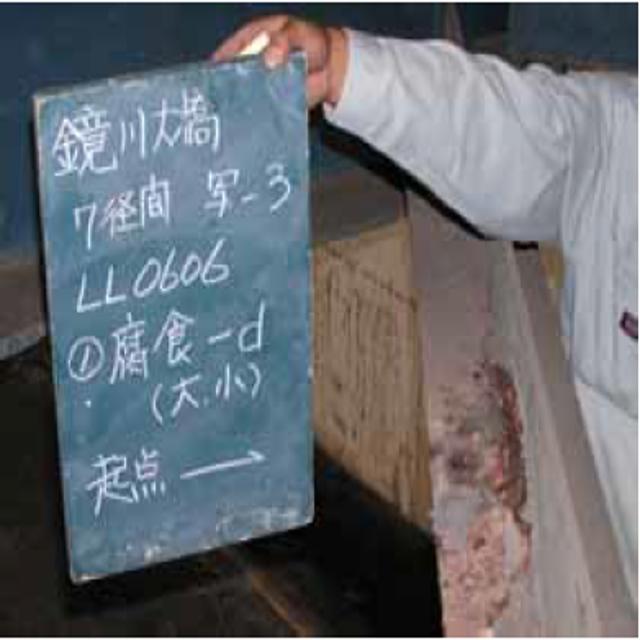 鏡川大橋
7径間 写-3
LL0606
①腐食-d
(大.小)
起点 →